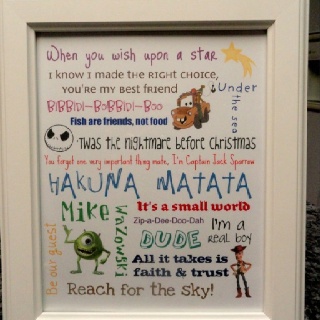 When you wish upon a star
I know I made the RIGHT CHOICE,
you're my best friend
Under the sea
BiBBiDi-BoBBiDi-Boo
Fish are friends, not food
'Twas the nightmare before christmas
You forgot one very important thing mate, I'm Captain Jack Sparrow
HAKUNA MATATA
Mike
Wazowski
It's a small world
Zip-a-Dee-Doo-Dah
I'm a
Real Boy
DUDE
Be our guest
All it takes is
faith & trust
Reach for the sky!